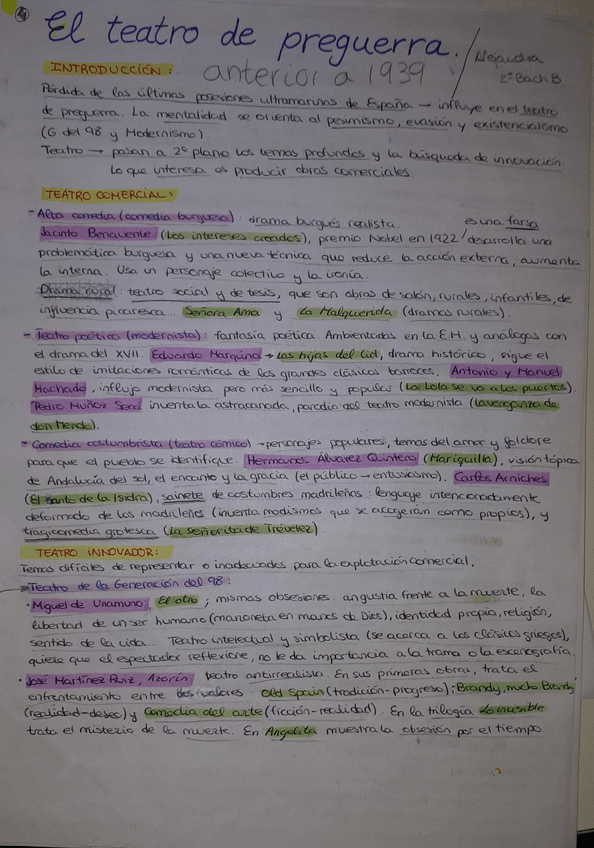 El teatro de preguerra.
Alejandra
2º Bach B
anterior a 1939
INTRODUCCIÓN:
Pérdida de las últimas posesiones ultramarinas de España → influye en el teatro
de preguerra. La mentalidad se orienta al pesimismo, evasión y existencialismo
(G del 98 y Modernismo)
Teatro → pasan a 2º plano los temas profundos y la búsqueda de innovación
Lo que interesa es producir obras comerciales
TEATRO COMERCIAL:
- Alta comedia (comedia burguesa): drama burgués realista. es una farsa
Jacinto Benavente (Los intereses creados), premio Nobel en 1922 / desarrolla una
problemática burguesa y una nueva técnica que reduce la acción externa, aumenta
la interna. Usa un personaje colectivo y la ironía.
Drama rural: teatro social y de tesis, que son obras de salón, rurales, infantiles, de
influencia picaresca... Señora Ama y La Malquerida (dramas rurales).
- Teatro poético (modernista): fantasía poética. Ambientadas en la E.M. y análogas con
el drama del XVII. Eduardo Marquina → Las hijas del Cid, drama histórico, sigue el
estilo de imitaciones románticas de los grandes clásicos barrocos. Antonio y Manuel
Machado, influjo modernista pero más sencillo y popular (La Lola se va a los puertos).
Pedro Muñoz Seca inventa la astracanada, parodia del teatro modernista (La venganza de
don Mendo).
- Comedia costumbrista (teatro cómico) → personajes populares, temas del amor y folclore
para que el pueblo se identifique. Hermanos Álvarez Quintero (Mariquilla), visión tópica
de Andalucía del sol, el encanto y la gracia (el público → entusiasmo). Carlos Arniches
(El santo de la Isidra), sainete de costumbres madrileñas: lenguaje intencionadamente
deformado de los madrileños (inventa modismos que se acogerán como propios), y
tragicomedia grotesca (La señorita de Trévelez)
TEATRO INNOVADOR:
Temas difíciles de representar o inadecuados para la explotación comercial.
- Teatro de la Generación del 98:
· Miguel de Unamuno, El otro; mismas obsesiones: angustia frente a la muerte, la
libertad de un ser humano (marioneta en manos de Dios), identidad propia, religión,
sentido de la vida... Teatro intelectual y simbolista (se acerca a los clásicos griegos),
quiere que el espectador reflexione, no le da importancia a la trama o la escenografía.
· José Martínez Ruiz, Azorín: teatro antirrealista. En sus primeras obras, trata el
enfrentamiento entre dos valores: Old Spain (tradición-progreso); Brandy, mucho Brandy
(realidad-deseo) y Comedia del arte (ficción-realidad). En la trilogía Lo invisible
trata el misterio de la muerte. En Angelita muestra la obsesión por el tiempo.